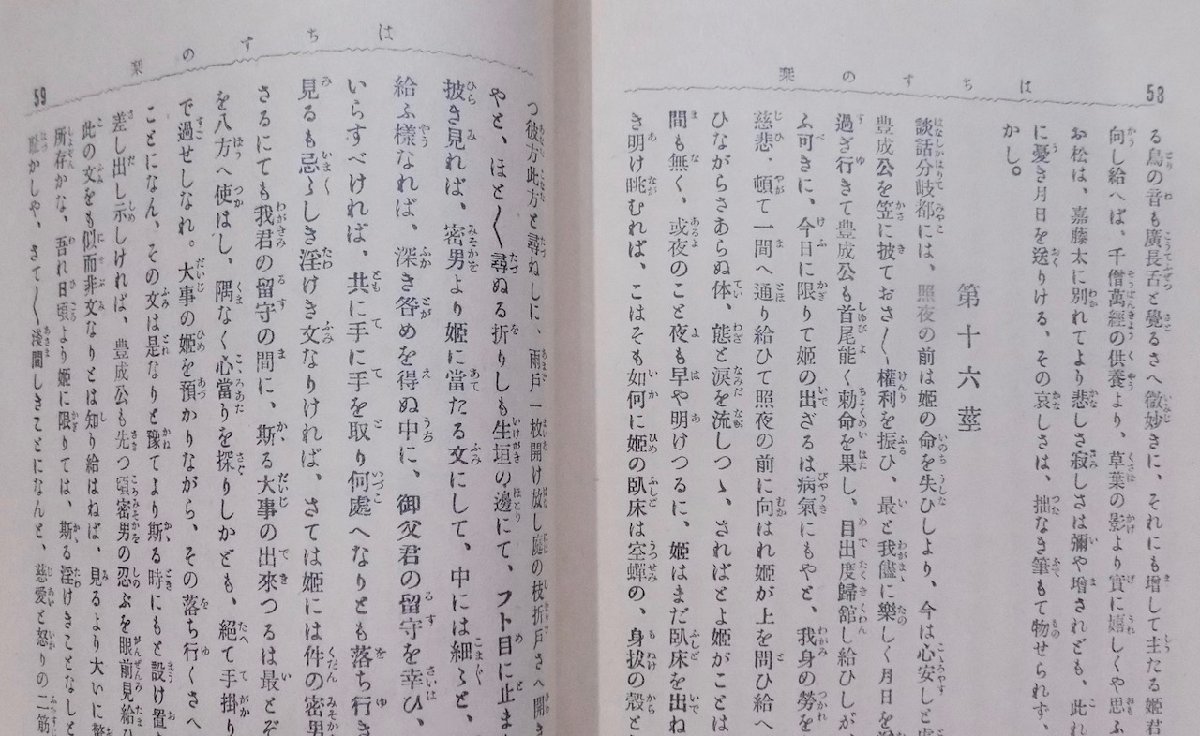 はちすの栞
58
る鳥の音も廣長舌と覺るさへ微妙きに、それにも增して主たる姬君
向し給へば、千僧萬經の供養より、草葉の影より實に嬉しくや思ふ
お松は、嘉藤太に別れてより悲しさ寂しさは彌や增されども、此れ
に憂き月日を送りける、その哀しさは、拙なき筆もて物せられず、
かし。
第十六莖
談話分岐都には、照夜の前は姬の命を失ひしより、今は心安しと處
豊成公を笠に披ておさ〳〵權利を振ひ、最と我儘に樂しく月日を
過ぎ行きて豊成公も首尾能く勅命を果し、目出度歸館し給ひしが、
ふ可きに、今日に限りて姬の出ざるは病氣にもやと、我身の勞を
慈悲、頓て一間へ通り給ひて照夜の前に向はれ姬が上を問ひ給へ
ひながらさあらぬ体、態と淚を流しつゝ、さればとよ姬がことは
間も無く、或夜のこと夜も早や明けつるに、姬はまだ臥床を出ね
き明け眺むれば、こはそも如何に姬の臥床は空蟬の、身拔の殼と
はちすの栞
59
つ彼方此方と尋ぬしに、雨戶一枚開け放し庭の枝折戶さへ開き
やと、ほと〳〵尋ぬる折りしも生垣の邊にて、フト目に止ま
披き見れば、密男より姬に當たる文にして、中には細〻と、
給ふ樣なれば、深き咎めを得ぬ中に、御父君の留守を幸ひ、
いらすべければ、共に手に手を取り何處へなりとも落ち行き
見るも忌〻しき淫けき文なりければ、さては姬には件の密男
さるにても我君の留守の間に、斯る大事の出來つるは最とぞ
を八方へ使はし、隈なく心當りを探りしかども、絕へて手掛り
で過せしなれ。大事の姬を預かりながら、その落ち行くさへ
ことになん、その文は是なりと豫てより斯る時にもと設け置
差し出し示しければ、豊成公も先つ頃密男の忍ぶを眼前見給ひ
此の文をも似而非文なりとは知り給はねば、見るより大いに驚
所存かな、吾れ日頃より姬に限りては、斯る淫けきことなしと
かしや、さて〳〵淺間しきことになんと、慈愛と怒りの二筋